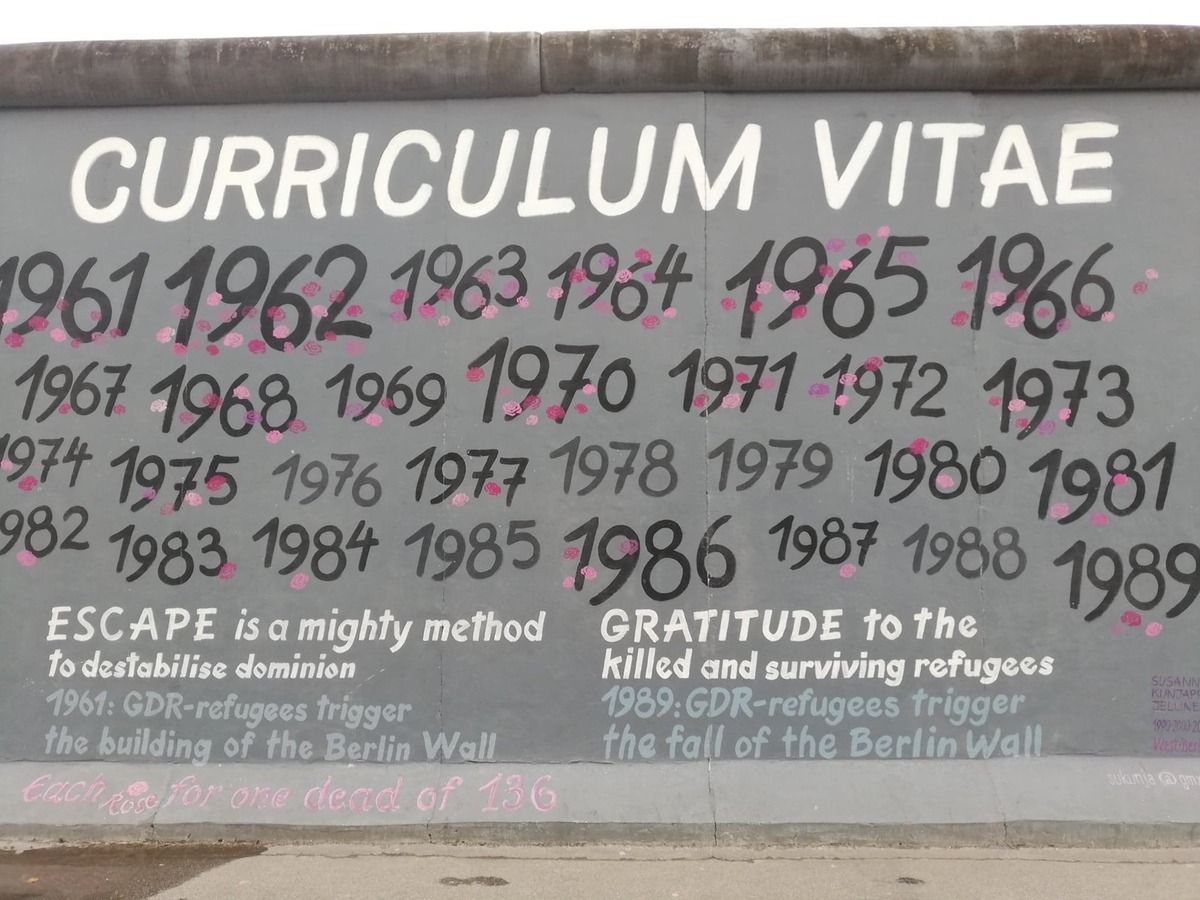 CURRICULUM VITAE
1961 1962 1963 1964 1965 1966
1967 1968 1969 1970 1971 1972 1973
1974 1975 1976 1977 1978 1979 1980 1981
982 1983 1984 1985 1986 1987 1988 1989
ESCAPE is a mighty method
to destabilise dominion
1961: GDR-refugees trigger
the building of the Berlin Wall
GRATITUDE to the
killed and surviving refugees
1989: GDR-refugees trigger
the fall of the Berlin Wall
Each Rose for one dead of 136
SUSANN
KUNJAP
JELLINE
sukunja@gm